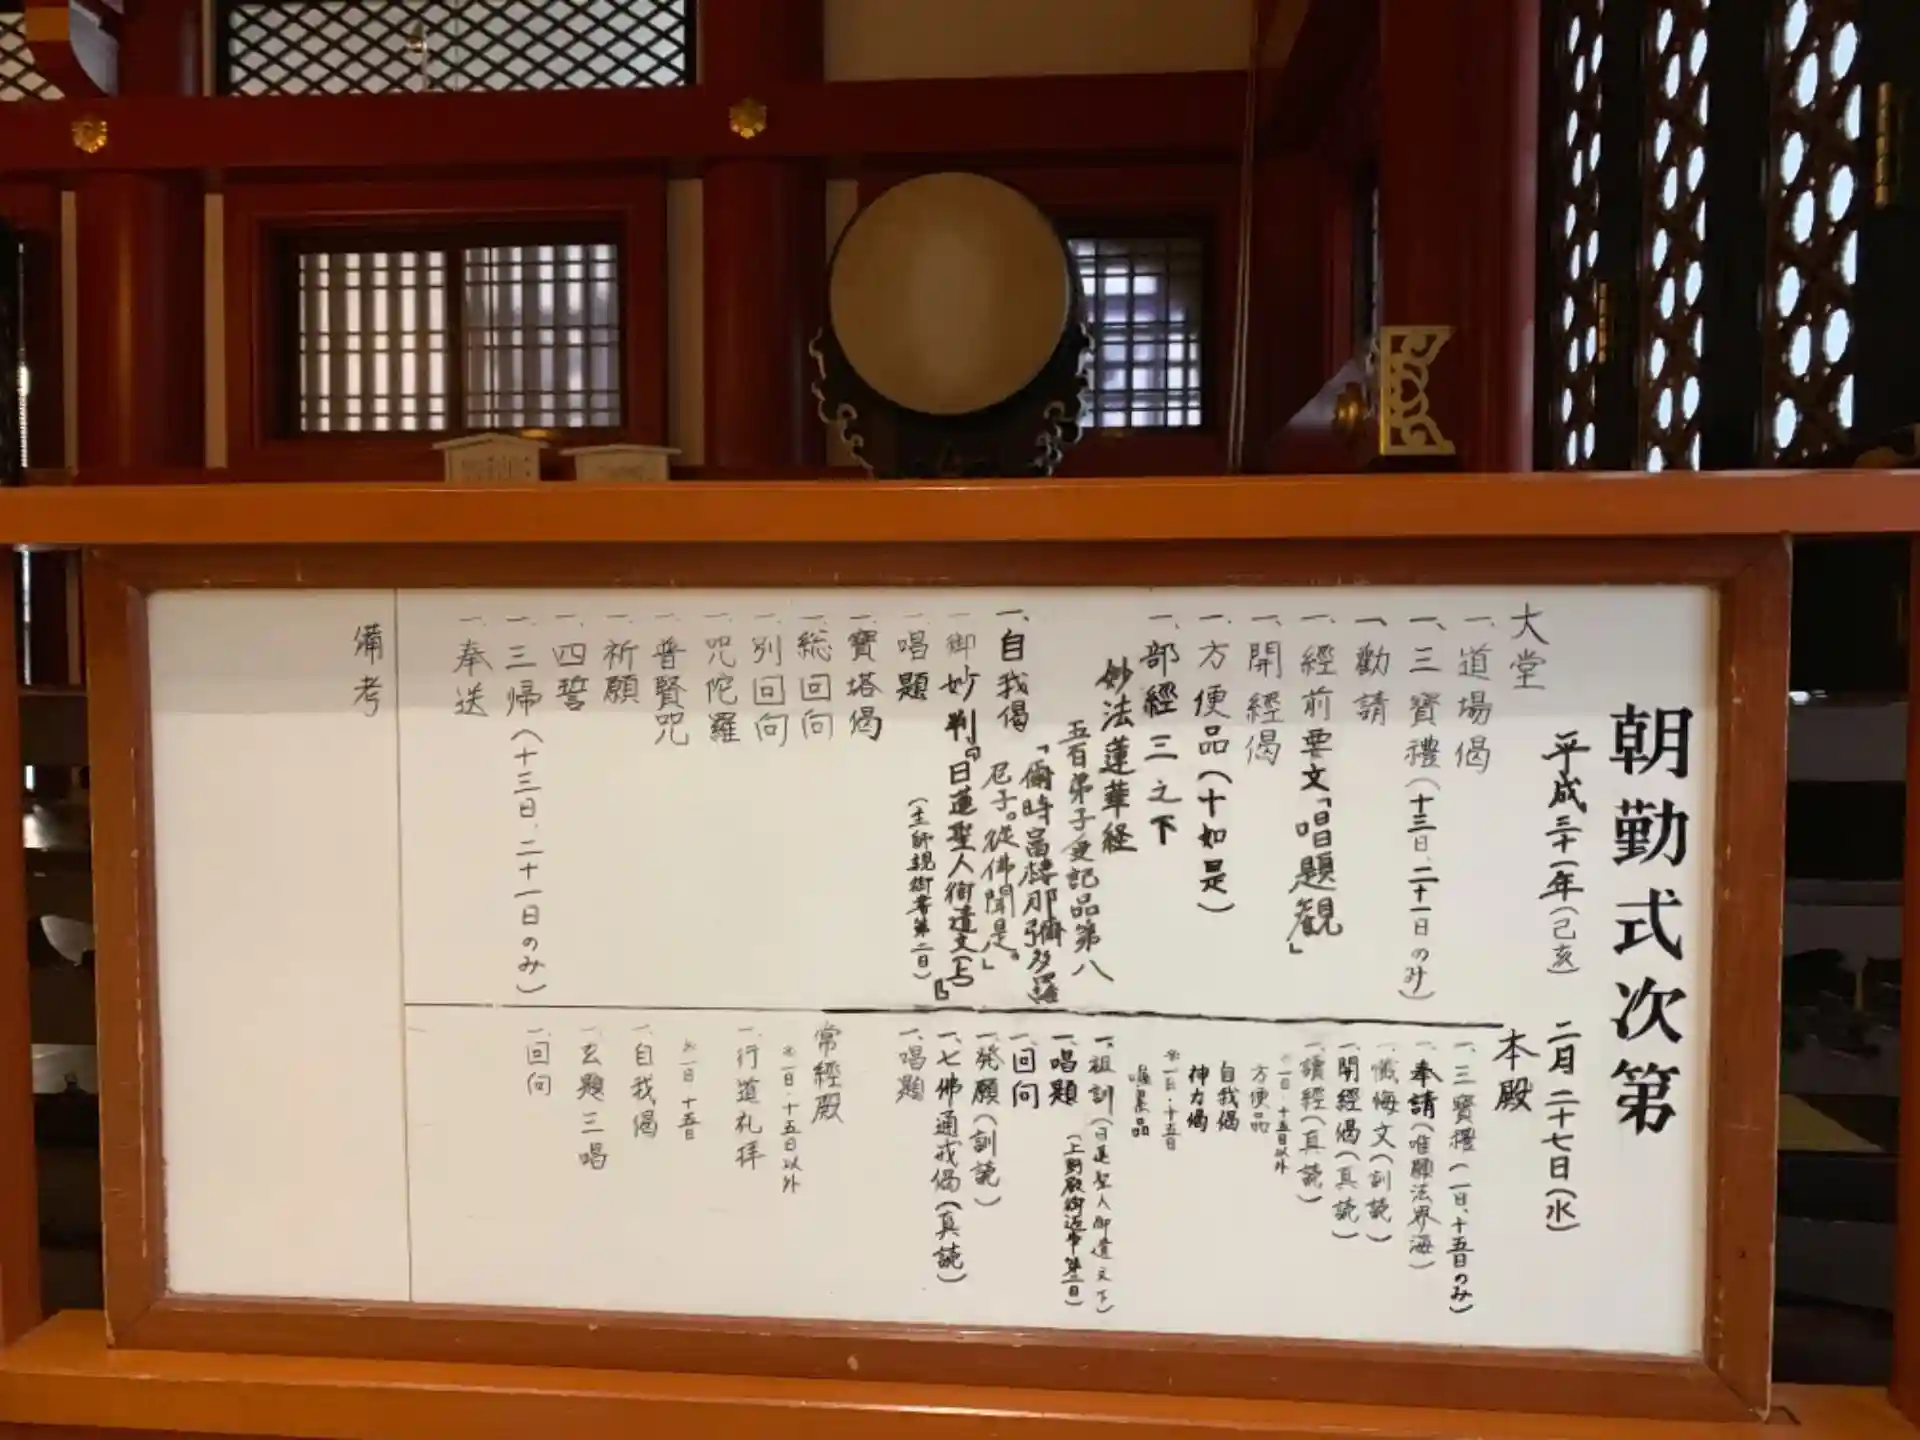 朝勤式次第
平成三十一年(己亥) 二月二十七日(水)
大堂
一、道場偈
一、三寶禮(十三日、二十一日のみ)
一、勸請
一、經前要文「唱題観」
一、開經偈
一、方便品(十如是)
一、部經 三之下
妙法蓮華経
五百弟子受記品第八
「爾時富樓那彌多羅
尼子。從佛聞是。」
一、自我偈
一、御妙判『日蓮聖人御遺文(上)』
一、唱題
一、寶塔偈
一、総回向
一、別回向
一、咒陀羅
一、普賢咒
一、祈願
一、四誓
一、三帰(十三日、二十一日のみ)
一、奉送
本殿
一、三寶禮(一日、十五日のみ)
一、奉請(唯願法界海)
一、懺悔文(訓読)
一、開經偈(真読)
一、讀經(真読)
※一日・十五日以外
方便品
自我偈
神力偈
※一日・十五日
囑累品
一、祖訓(日蓮聖人御遺文下)
一、唱題
一、回向
一、発願(訓読)
一、七佛通戒偈(真読)
一、唱題
常經殿
※一日・十五日以外
一、行道礼拝
※一日 十五日
一、自我偈
一、玄題三唱
一、回向
備考